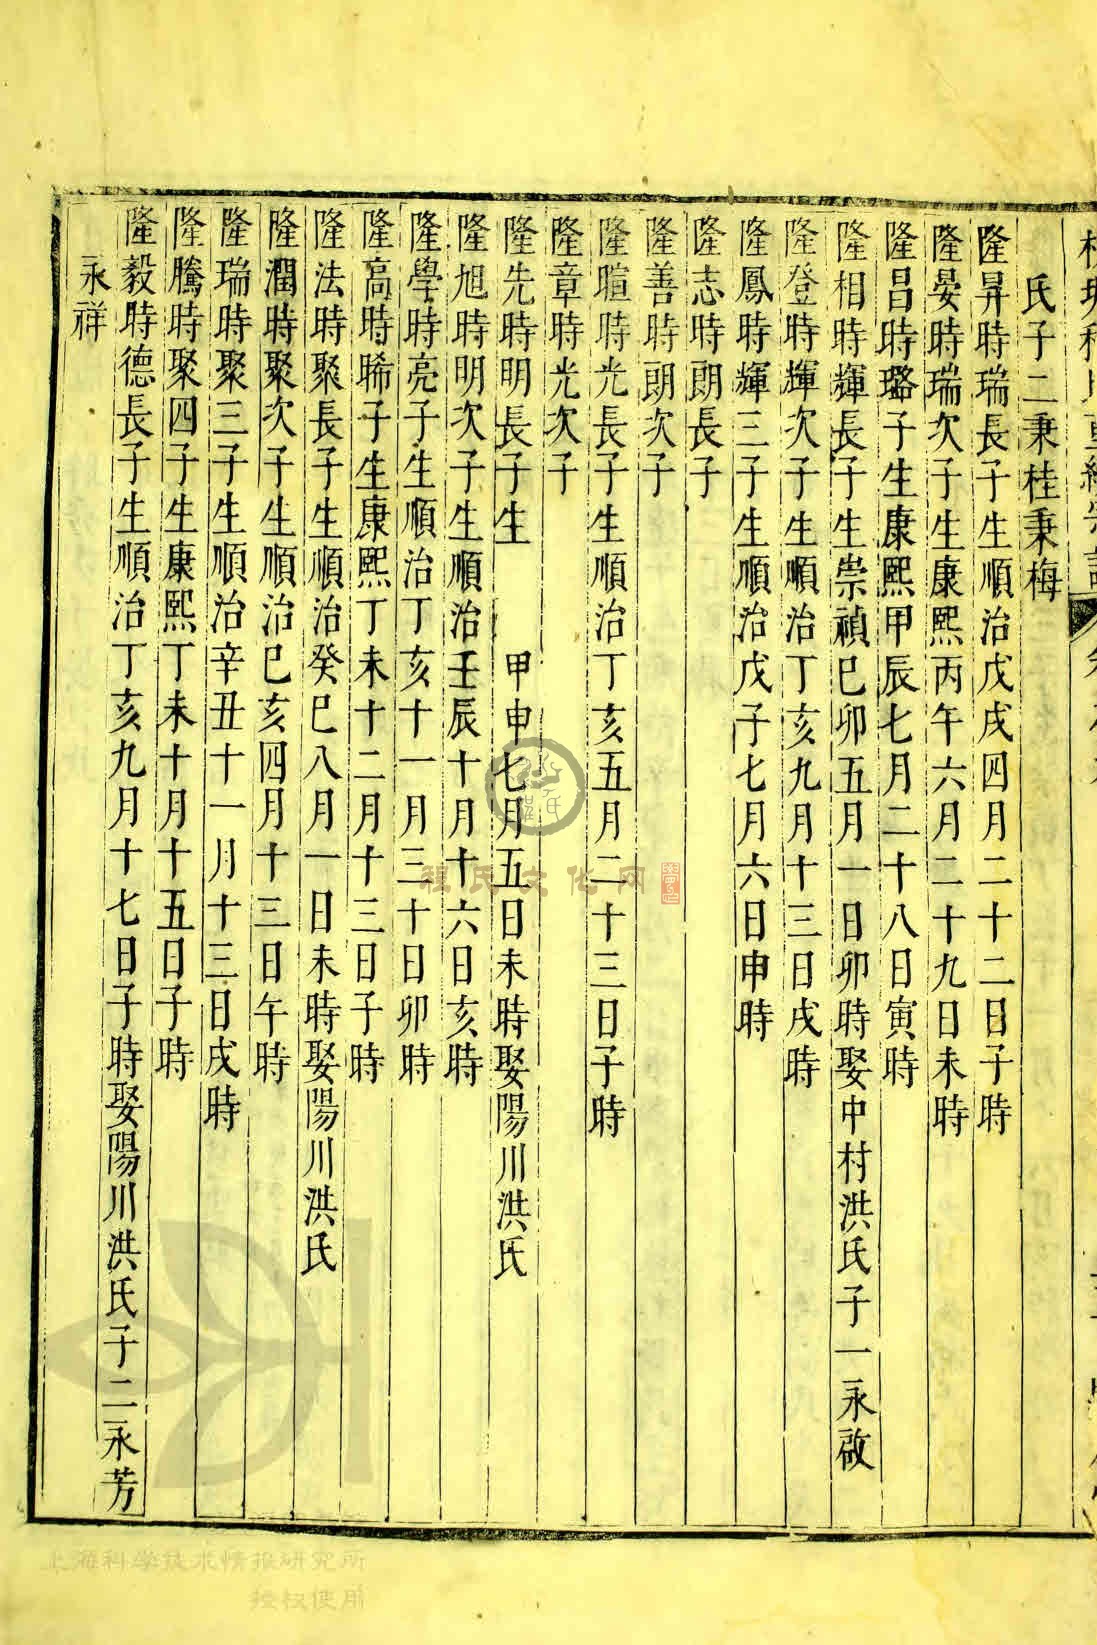 氏子二秉桂秉梅
隆昇時瑞長子生順治戊戌四月二十二日子時
隆晏時瑞次子生康熙丙午六月二十九日未時
隆昌時璐子生康熙甲辰七月二十八日寅時
隆相時輝長子生崇禎己卯五月一日卯時娶中村洪氏子一永啟
隆登時輝次子生順治丁亥九月十三日戌時
隆鳳時輝三子生順治戊子七月六日申時
隆志時朗長子
隆善時朗次子
隆暄時光長子生順治丁亥五月二十三日子時
隆章時光次子
隆先時明長子生 甲申七月五日未時娶陽川洪氏
隆旭時明次子生順治壬辰十月十六日亥時
隆學時亮子生順治丁亥十一月三十日卯時
隆高時晞子生康熙丁未十二月十三日子時
隆法時聚長子生順治癸巳八月一日未時娶陽川洪氏
隆潤時聚次子生順治己亥四月十三日午時
隆瑞時聚三子生順治辛丑十一月十三日戌時
隆騰時聚四子生康熙丁未十月十五日子時
隆毅時德長子生順治丁亥九月十七日子時娶陽川洪氏子二永芳
永祥
程氏文化网
上海科学技术情报研究所
授权使用